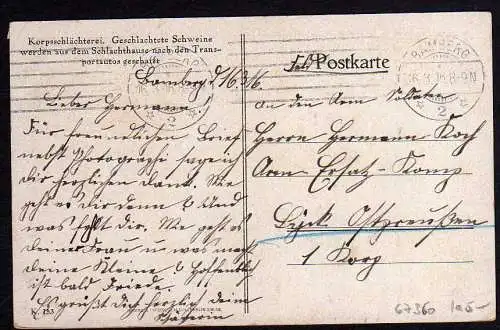 Korpsschlächterei. Geschlachtete Schweine
werden aus dem Schlachthause nach den Trans-
portautos geschafft
Bamberg d. 16.3.16.
Lieber Hermann!
Für freundlichen Brief
nebst Photographi sage ich
dir herzlichen dank. Wie
geht es dir denn & Und
was fehlt dir. Wie geht es
deine Frau u was macht
deine Kleine & Hoffentlich
ist bald Friede.
Es grüßt Dich herzlich dein
N. 253
Feld Postkarte
BAMBERG
16.3.16.8-9N
2
an den Arm Soldaten
Herrn Hermann Koch
Arm Ersatz-Komp
Lyck Ostpreußen
1 Korp
67360